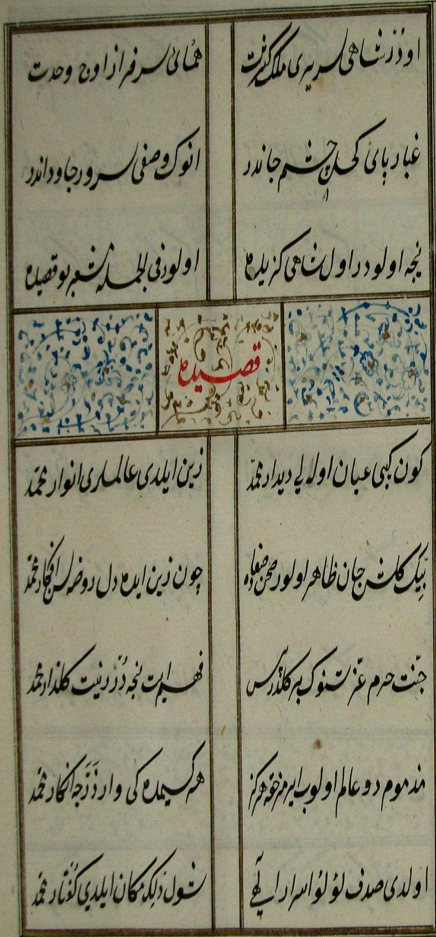 اودر شاهی سریری ملک کثرت همای سرفراز اوج وحدت
غبار پای کحل چشم جاندر انوک وصفی سرور جاوداندر
نیجه اولور در اول شاهی کزیده اولور فی الجمله شعر بو قصیده
قصیده
کون کبی عیان اوله لی دیدار محمد زین ایلدی عالملری انوار محمد
بیک کلشن جان ظاهر اولور صحن چون زین ایده دل روضه سن افکار محمد
جنت حرم عزتنوک بر کلیدر فهم ایت نجه در زینت کلذار محمد
مذموم دو عالم اولوب ایرمز هرکز هر کیمده کی وار ذرجه انکار محمد
اولدی صدف لؤلؤ اسرار الهی شول دلکه مکان ایلدی کفتار محمد